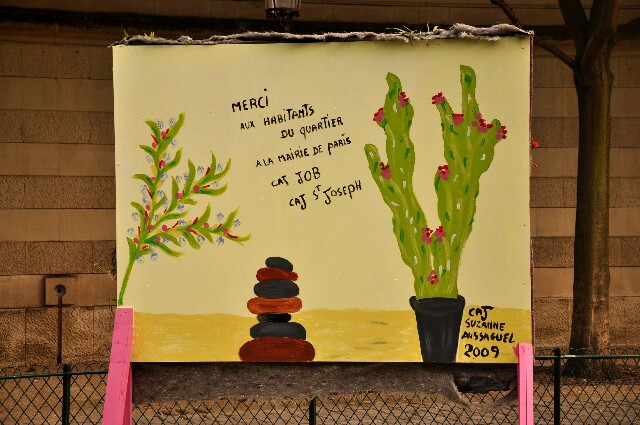 MERCI
AUX HABITANTS
DU QUARTIER
A LA MAIRIE DE PARIS
CAJ JOB
CAJ ST JOSEPH
CAJ
SUZANNE
AUSSAGUEL
2009